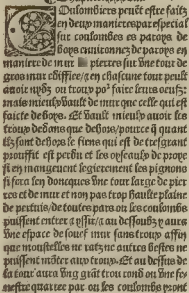 Coulombiers peult estre faitz
en deux manieres par especial
sur coulombes es paroys de
boys enuironnez de paroys en
maniere de mur pierres sur vne tour de
gros mur chiffice / z en chascune tout peult
auoir nydz ou trouz pour faire leurs oeufz
mais mieulx vault de mur que celle qui est
faicte de boys. Et vault mieulx auoir les
trouz dedans que dehors / pource q̃ quant
ilz sont dehors le fiens qui est de tresgrant
prouffit est perdu et les oyseaulx de proye
si en mangeuent legierement les pignons
si fera len doncques vne tour large de pier
res et de mur et non pas trop haulte plaine
de pertuis / de toutes pars ou les coulombs
puissent entrer z yssir / z au dessoubz y aura
vne espace de souef mur sans trouz affin
que moustelles ne ratz ne autres bestes ne
puissent mõter aux trouz. Et au dessus de
la tour aura vng grãt trou rond ou vne fe
nestre quarree par ou les coulombs ysont